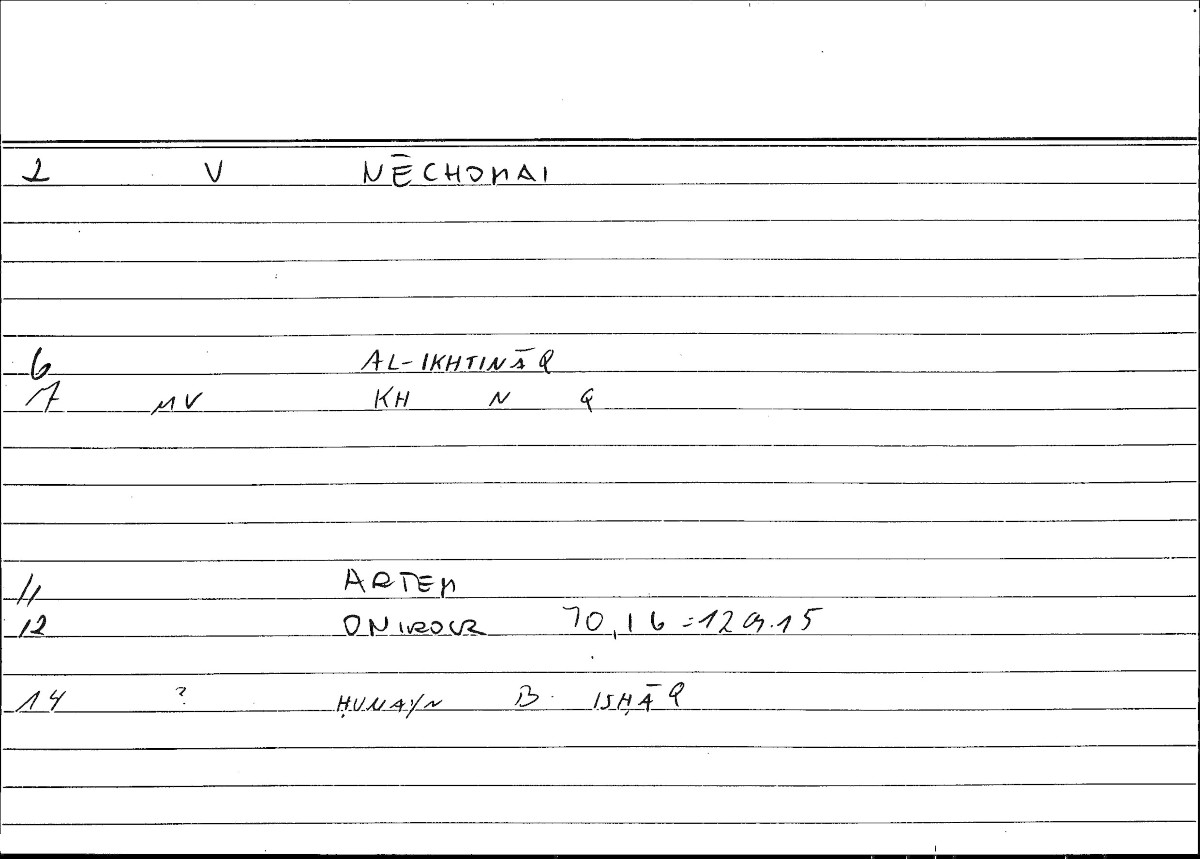 2 V NĒCHOMAI
6 AL-IKHTINĀQ
7 MV KH N Q
11 ARTEM
12 ONIROCR 70,16=129.15
14 ? ḤUNAYN B. ISḤĀQ